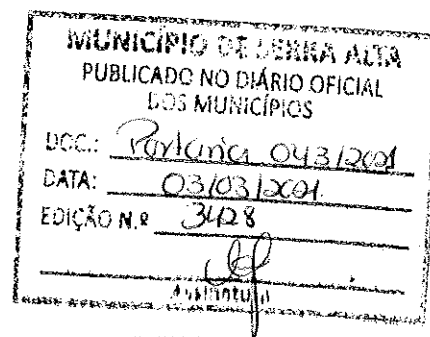 MUNICÍPIO DE SERRA ALTA
PUBLICADO NO DIÁRIO OFICIAL
DOS MUNICÍPIOS
DOC.: Portaria 043/2021
DATA: 03/03/2021.
EDIÇÃO N.º 3428
Assinatura